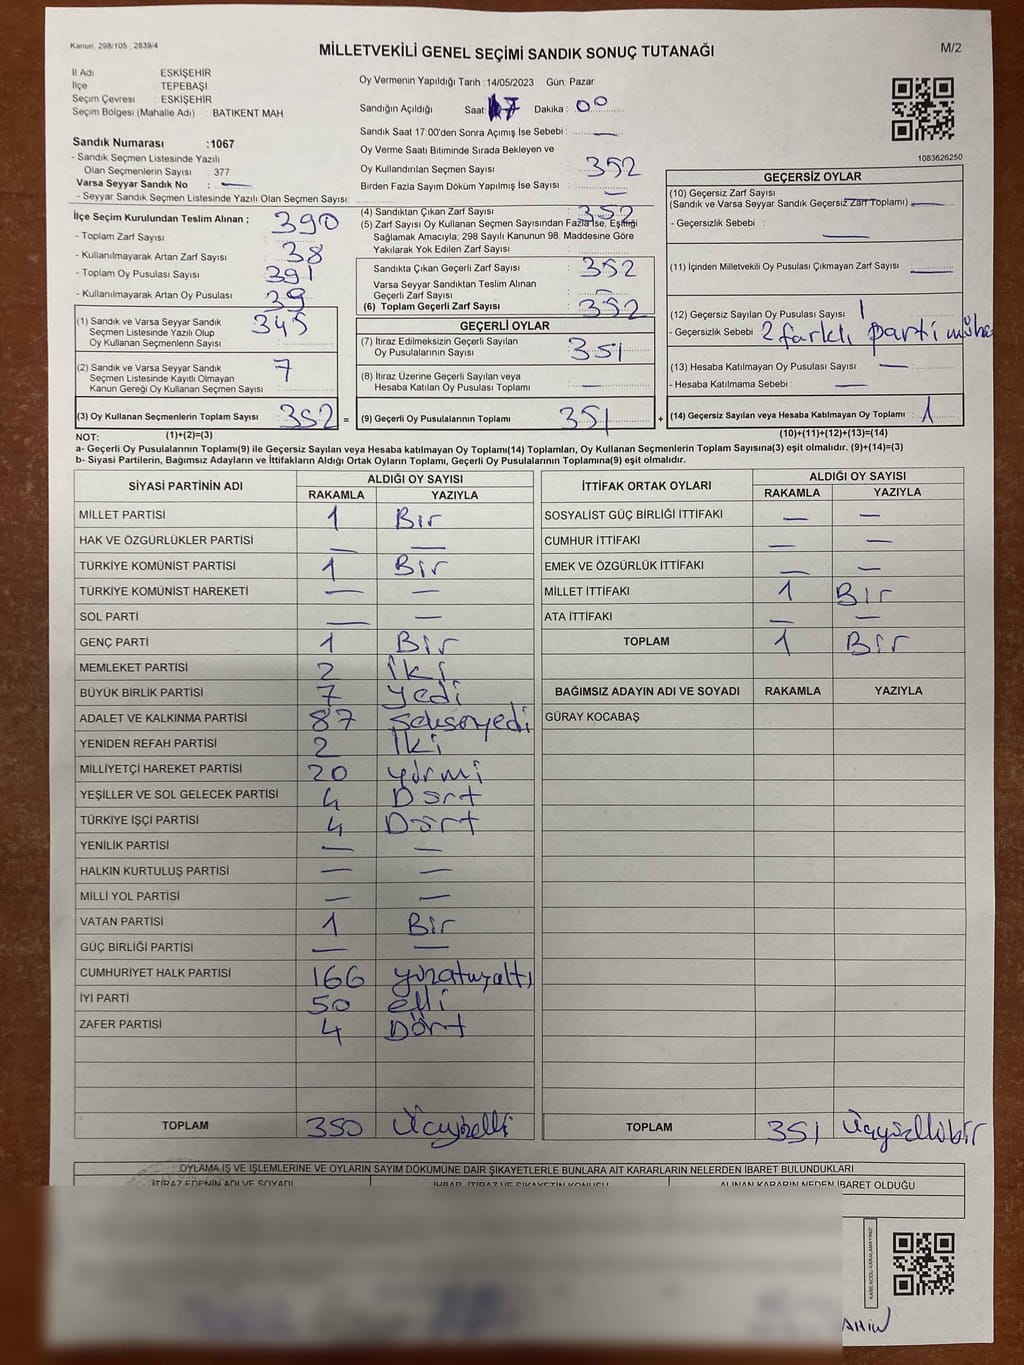 Kanun, 298/105 , 2839/4
MİLLETVEKİLİ GENEL SEÇİMİ SANDIK SONUÇ TUTANAĞI
M/2
İl Adı : ESKİŞEHİR
İlçe : TEPEBAŞI
Seçim Çevresi : ESKİŞEHİR
Seçim Bölgesi (Mahalle Adı) : BATIKENT MAH
Sandık Numarası :1067
- Sandık Seçmen Listesinde Yazılı
Olan Seçmenlerin Sayısı : 377
Varsa Seyyar Sandık No : —
- Seyyar Sandık Seçmen Listesinde Yazılı Olan Seçmen Sayısı:
Oy Vermenin Yapıldığı Tarih :14/05/2023 Gün: Pazar
Sandığın Açıldığı Saat: 17 Dakika : 00
Sandık Saat 17:00'den Sonra Açımış İse Sebebi : —
Oy Verme Saati Bitiminde Sırada Bekleyen ve
Oy Kullandırılan Seçmen Sayısı : 352
Birden Fazla Sayım Döküm Yapılmış İse Sayısı : —
1083626250
İlçe Seçim Kurulundan Teslim Alınan ;
- Toplam Zarf Sayısı : 390
- Kullanılmayarak Artan Zarf Sayısı : 38
- Toplam Oy Pusulası Sayısı : 391
- Kullanılmayarak Artan Oy Pusulası : 39
(1) Sandık ve Varsa Seyyar Sandık
Seçmen Listesinde Yazılı Olup
Oy Kullanan Seçmenlerin Sayısı : 345
(2) Sandık ve Varsa Seyyar Sandık
Seçmen Listesinde Kayıtlı Olmayan
Kanun Gereği Oy Kullanan Seçmen Sayısı : 7
(3) Oy Kullanan Seçmenlerin Toplam Sayısı : 352 =
(1)+(2)=(3)
(4) Sandıktan Çıkan Zarf Sayısı : 352
(5) Zarf Sayısı Oy Kullanan Seçmen Sayısından Fazla İse, Eşitliği
Sağlamak Amacıyla; 298 Sayılı Kanunun 98. Maddesine Göre
Yakılarak Yok Edilen Zarf Sayısı :
Sandıkta Çıkan Geçerli Zarf Sayısı : 352
Varsa Seyyar Sandıktan Teslim Alınan
Geçerli Zarf Sayısı : —
(6) Toplam Geçerli Zarf Sayısı : 352
GEÇERLİ OYLAR
(7) İtiraz Edilmeksizin Geçerli Sayılan
Oy Pusulalarının Sayısı : 351
(8) İtiraz Üzerine Geçerli Sayılan veya
Hesaba Katılan Oy Pusulası Toplamı : —
(9) Geçerli Oy Pusulalarının Toplamı : 351 +
GEÇERSİZ OYLAR
(10) Geçersiz Zarf Sayısı
(Sandık ve Varsa Seyyar Sandık Geçersiz Zarf Toplamı) : —
- Geçersizlik Sebebi : —
(11) İçinden Milletvekili Oy Pusulası Çıkmayan Zarf Sayısı : —
(12) Geçersiz Sayılan Oy Pusulası Sayısı : 1
- Geçersizlik Sebebi : 2 farklı parti
(13) Hesaba Katılmayan Oy Pusulası Sayısı : —
- Hesaba Katılmama Sebebi : —
(14) Geçersiz Sayılan veya Hesaba Katılmayan Oy Toplamı : 1
(10)+(11)+(12)+(13)=(14)
NOT:
a- Geçerli Oy Pusulalarının Toplamı(9) ile Geçersiz Sayılan veya Hesaba katılmayan Oy Toplamı(14) Toplamları, Oy Kullanan Seçmenlerin Toplam Sayısına(3) eşit olmalıdır. (9)+(14)=(3)
b- Siyasi Partilerin, Bağımsız Adayların ve İttifakların Aldığı Ortak Oyların Toplamı, Geçerli Oy Pusulalarının Toplamına(9) eşit olmalıdır.
SİYASİ PARTİNİN ADI ALDIĞI OY SAYISI
RAKAMLA YAZIYLA
MİLLET PARTİSİ 1 Bir
HAK VE ÖZGÜRLÜKLER PARTİSİ — —
TÜRKİYE KOMÜNİST PARTİSİ 1 Bir
TÜRKİYE KOMÜNİST HAREKETİ — —
SOL PARTİ — —
GENÇ PARTİ 1 Bir
MEMLEKET PARTİSİ 2 iki
BÜYÜK BİRLİK PARTİSİ 7 yedi
ADALET VE KALKINMA PARTİSİ 87 seksenyedi
YENİDEN REFAH PARTİSİ 2 İki
MİLLİYETÇİ HAREKET PARTİSİ 20 yirmi
YEŞİLLER VE SOL GELECEK PARTİSİ 4 Dört
TÜRKİYE İŞÇİ PARTİSİ 4 Dört
YENİLİK PARTİSİ — —
HALKIN KURTULUŞ PARTİSİ — —
MİLLİ YOL PARTİSİ — —
VATAN PARTİSİ 1 Bir
GÜÇ BİRLİĞİ PARTİSİ — —
CUMHURİYET HALK PARTİSİ 166 yüzatmışaltı
İYİ PARTİ 50 elli
ZAFER PARTİSİ 4 Dört
TOPLAM 350 Üçyüzelli
İTTİFAK ORTAK OYLARI ALDIĞI OY SAYISI
RAKAMLA YAZIYLA
SOSYALİST GÜÇ BİRLİĞİ İTTİFAKI — —
CUMHUR İTTİFAKI — —
EMEK VE ÖZGÜRLÜK İTTİFAKI — —
MİLLET İTTİFAKI 1 Bir
ATA İTTİFAKI — —
TOPLAM 1 Bir
BAĞIMSIZ ADAYIN ADI VE SOYADI RAKAMLA YAZIYLA
GÜRAY KOCABAŞ
TOPLAM 351 Üçyüzellibir
OYLAMA İŞ VE İŞLEMLERİNE VE OYLARIN SAYIM DÖKÜMÜNE DAİR ŞİKAYETLERLE BUNLARA AİT KARARLARIN NELERDEN İBARET BULUNDUKLARI
İTİRAZ EDENİN ADI VE SOYADI İHBAR, İTİRAZ VE ŞİKAYETİN KONUSU ALINAN KARARIN NEDEN İBARET OLDUĞU